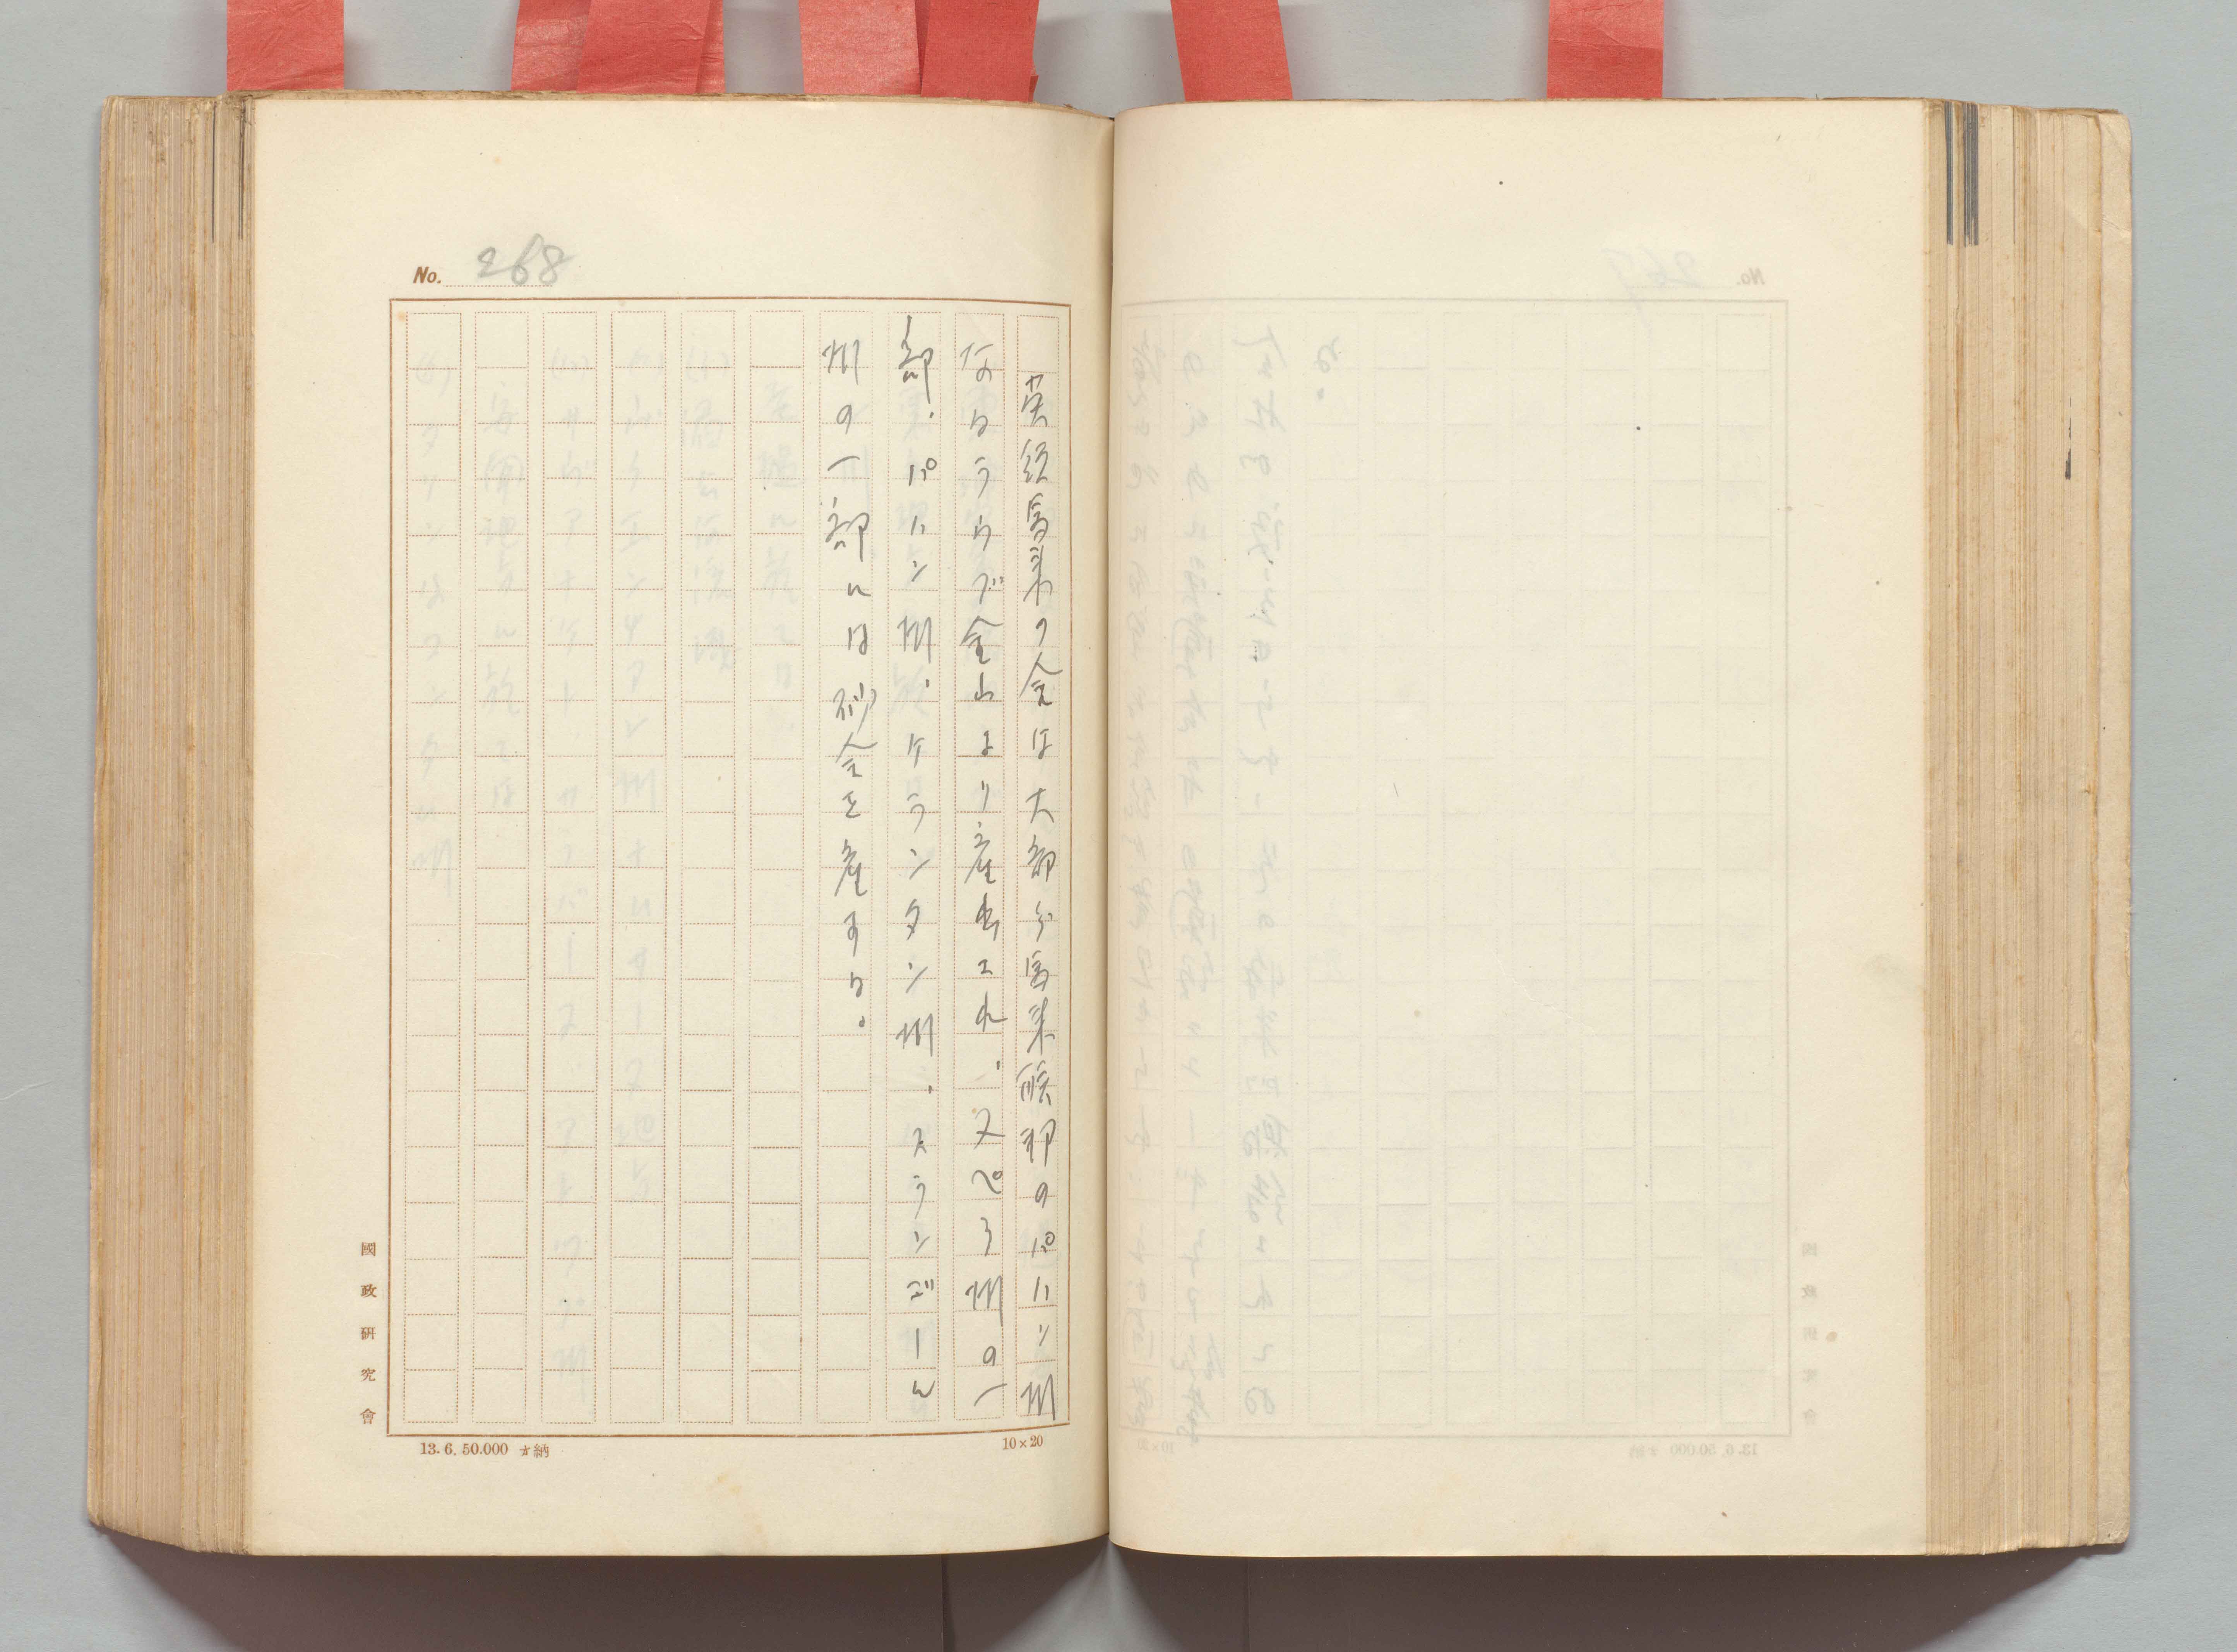 No. 268
英領馬来の金は大部分馬来聯邦のパハン州
なるラウブ金山より産出され、又ペラ州の一
部、パハン州、ケランタン州、スランゴール
州の一部には砂金を産する。
國政研究會
13. 6. 50.000 納
10×20